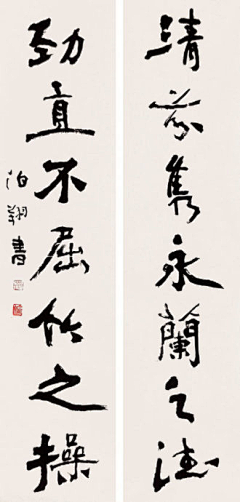 清芬雋永蘭之德
勁直不屈竹之操
伯翔書